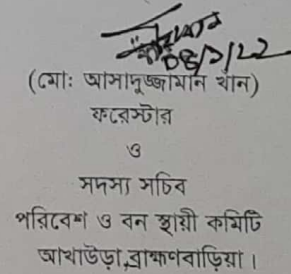 ০৪/১/২২
(মো: আসাদুজ্জামান খান)
ফরেস্টার
ও
সদস্য সচিব
পরিবেশ ও বন স্থায়ী কমিটি
আখাউড়া,ব্রাহ্মণবাড়িয়া।